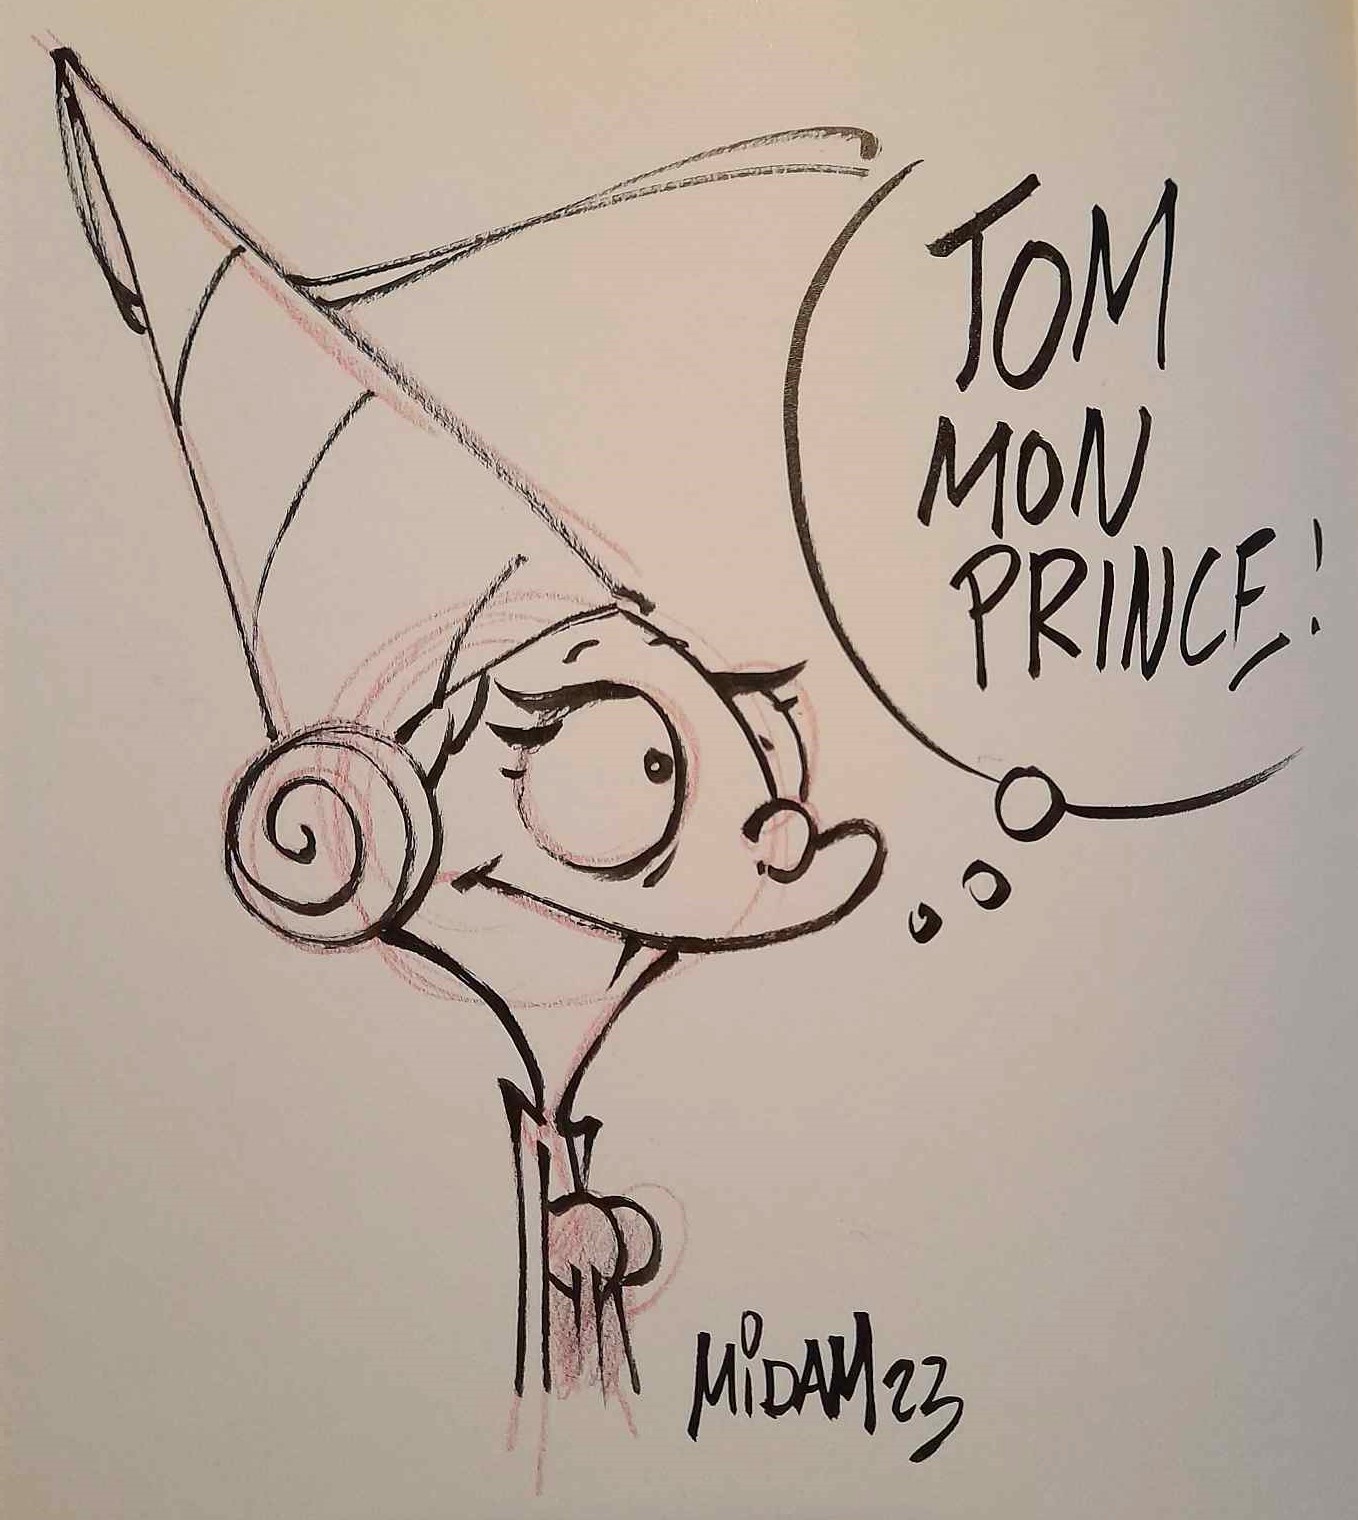 TOM
MON
PRINCE!
MiDAM 23